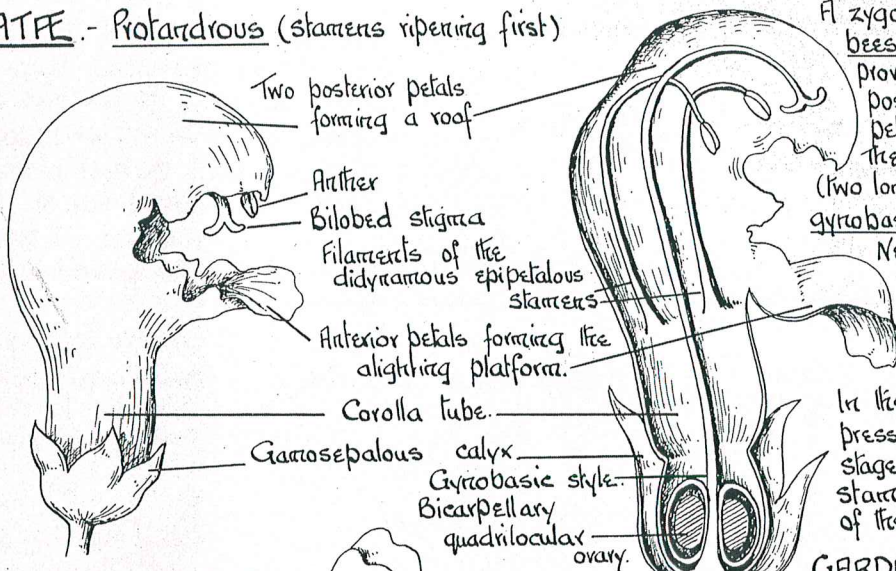 Protandrous (stamens ripening first)
Two posterior petals
forming a roof
Anther
Bilobed stigma
Filaments of the
didynamous epipetalous
stamens
Anterior petals forming the
alighting platform.
Corolla tube.
Gamosepalous calyx
Gynobasic style
Bicarpellary
quadrilocular
ovary.
A
bees
(two
In
of